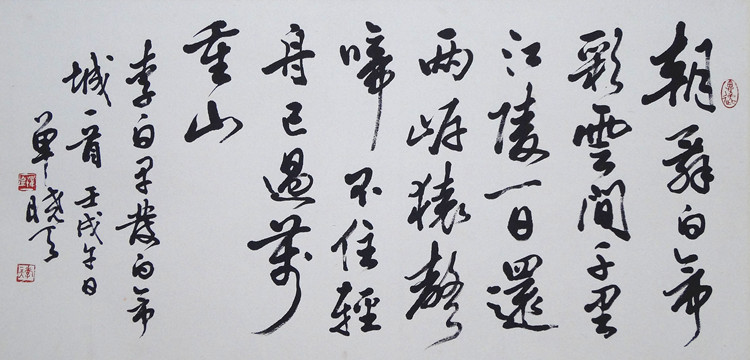 朝辭白帝
彩雲間千里
江陵一日還
两岸猿聲
啼不住輕
舟已過萬
重山
李白早發白帝
城一首 壬戌午日
單曉天